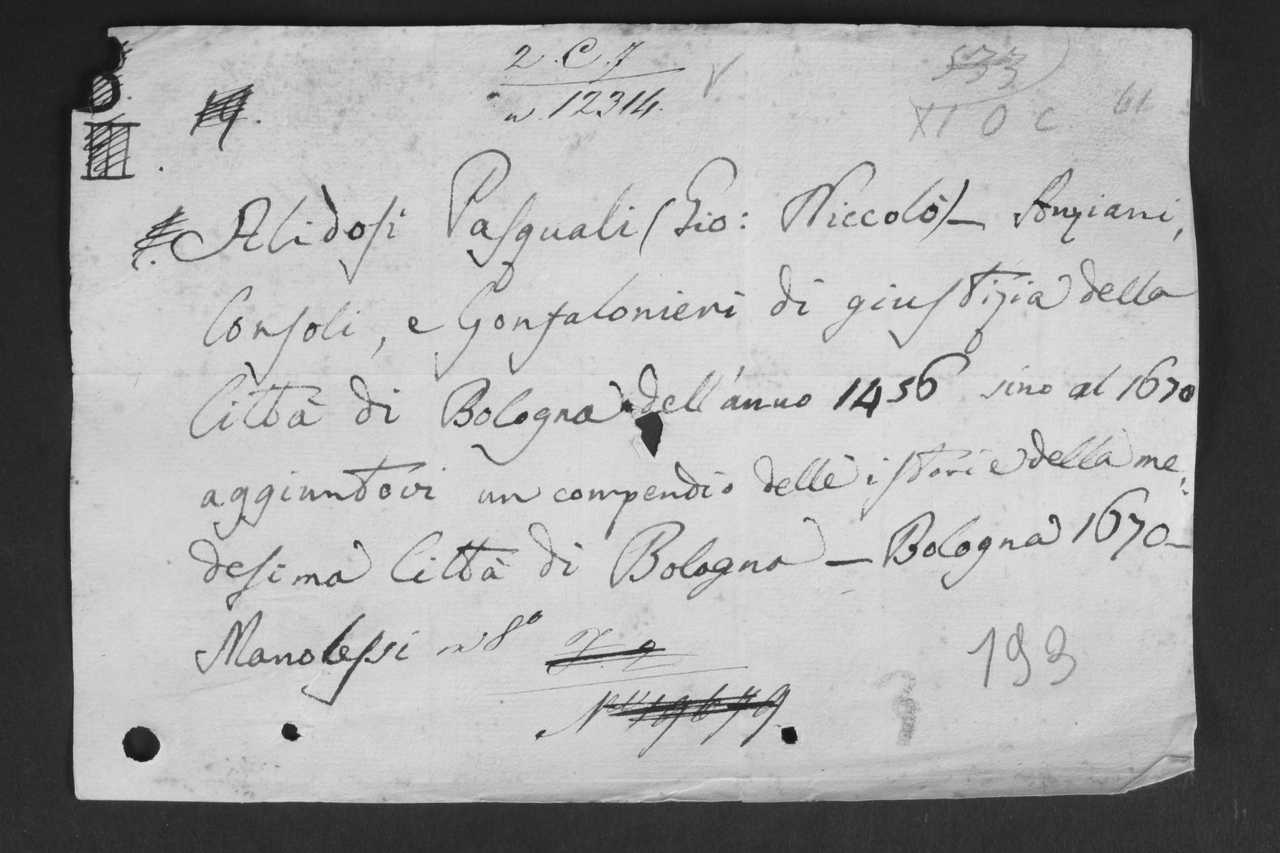 2. C. 7
n. 12314.
XI O C 61
Alidosi Pasquali (Gio: Niccolò) — Anziani,
Consoli, e Gonfalonieri di giustizia della
Città di Bologna dell'anno 1456 sino al 1670
aggiuntovi un compendio delle istorie della me,
desima Città di Bologna — Bologna 1670 —
Manolessi in 8°
193